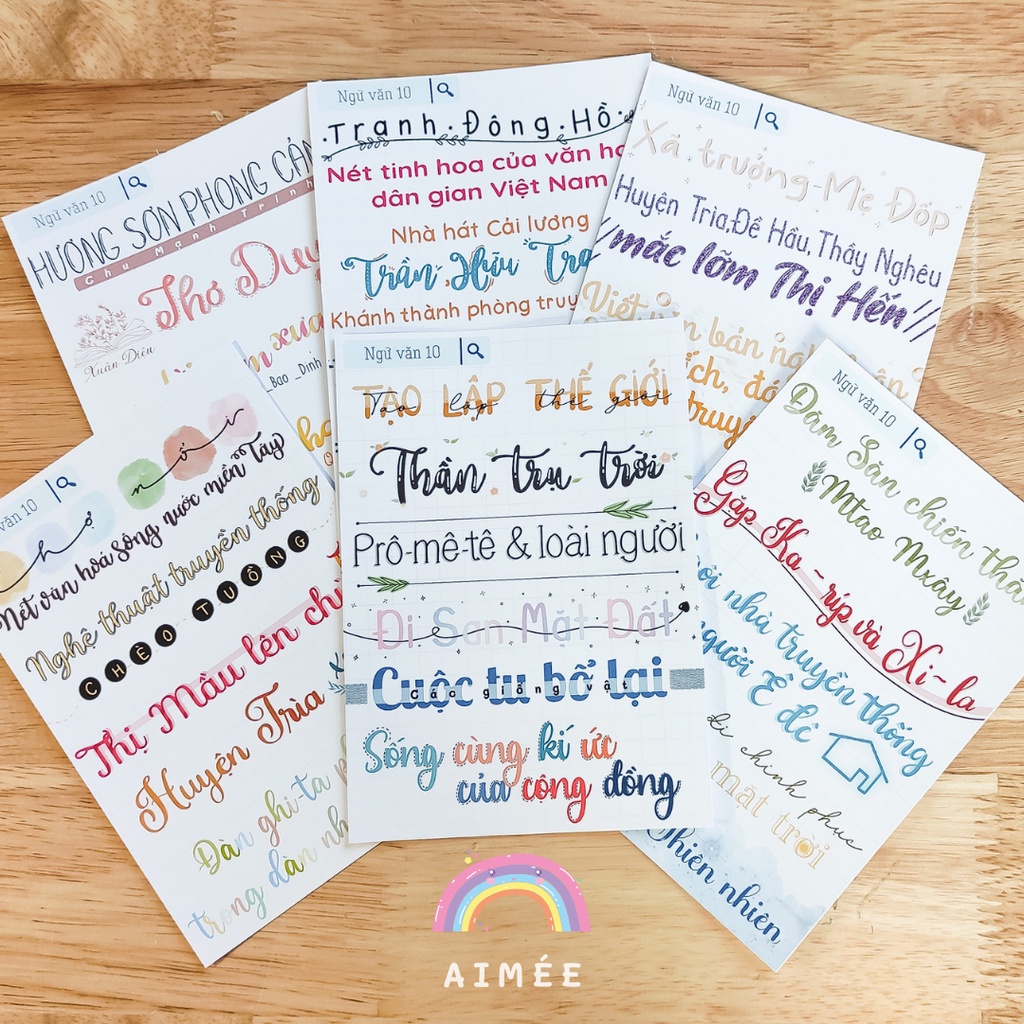 Ngữ văn 10
HƯƠNG SƠN PHONG CẢN
Chu Mạnh Trinh
Thơ Duy
Xuân Diệu
m xưa
_Bao _Dinh
Ngữ văn 10
Tranh Đông Hồ
Nét tinh hoa của văn hó
dân gian Việt Nam
Nhà hát Cải lương
Trần Hữu Tra
Khánh thành phòng truy
Ngữ văn 10
Xã trưởng-Mẹ Đốp
Huyện Trìa,Đề Hầu,Thầy Nghêu
//mắc lỡm Thị Hến//
Viết văn bản ngh
ích, đá
truy
văn 10
hợ nổi
Nét văn hoá sông nước miền Tây
Nghệ thuật truyền thống
CHÈO TUỒNG
Thị Mầu lên ch
Huyện Trìa
Đàn ghi-ta p
trong dàn nh
Ngữ văn 10
TẠO LẬP THẾ GIỚI
Tạo lập thế giới
Thần trụ trời
Prô-mê-tê & loài người
Đi San Mặt Đất
Cuộc tu bổ lại
Các giống vật
Sống cùng kí ức
của cộng đồng
Ngữ văn 10
Đăm Săn chiến thắ
Mtao Mxây
Gặp Ka-ríp và Xi-la
ôi nhà truyền thống
người Ê đê
đi chinh phục
mặt trời
Thiên nhiên
AIMÉE